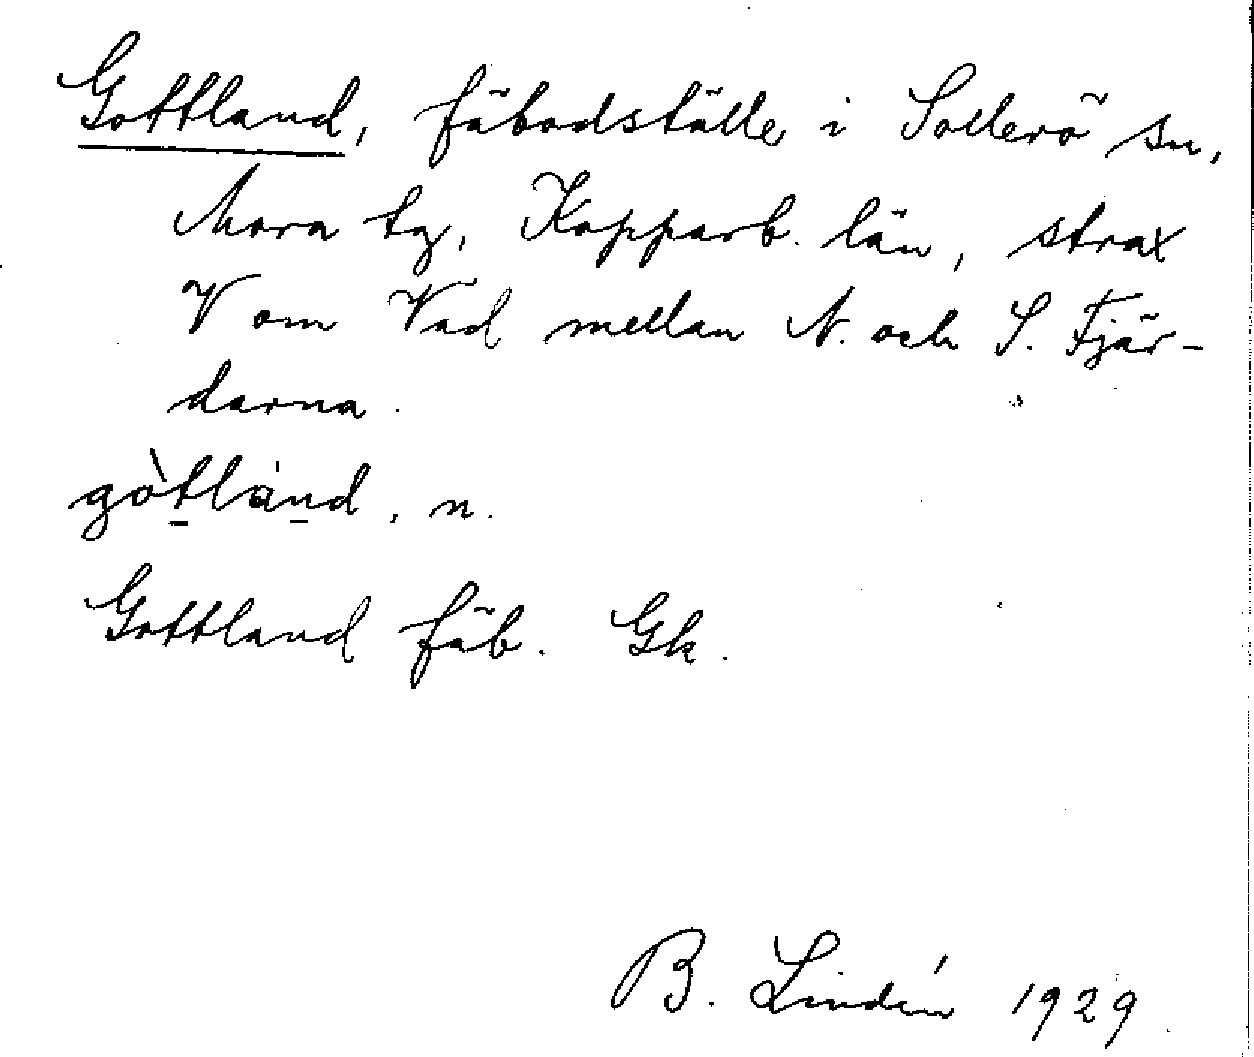 Gottland, fäbodställe i Sollerö sn,
Mora tg, Kopparb. län, strax
V om Vad mellan N. och S. Fjär-
darna.
gòt̠lan̠d, n.
Gottland fäb. Gk.
B. Lindén 1929.